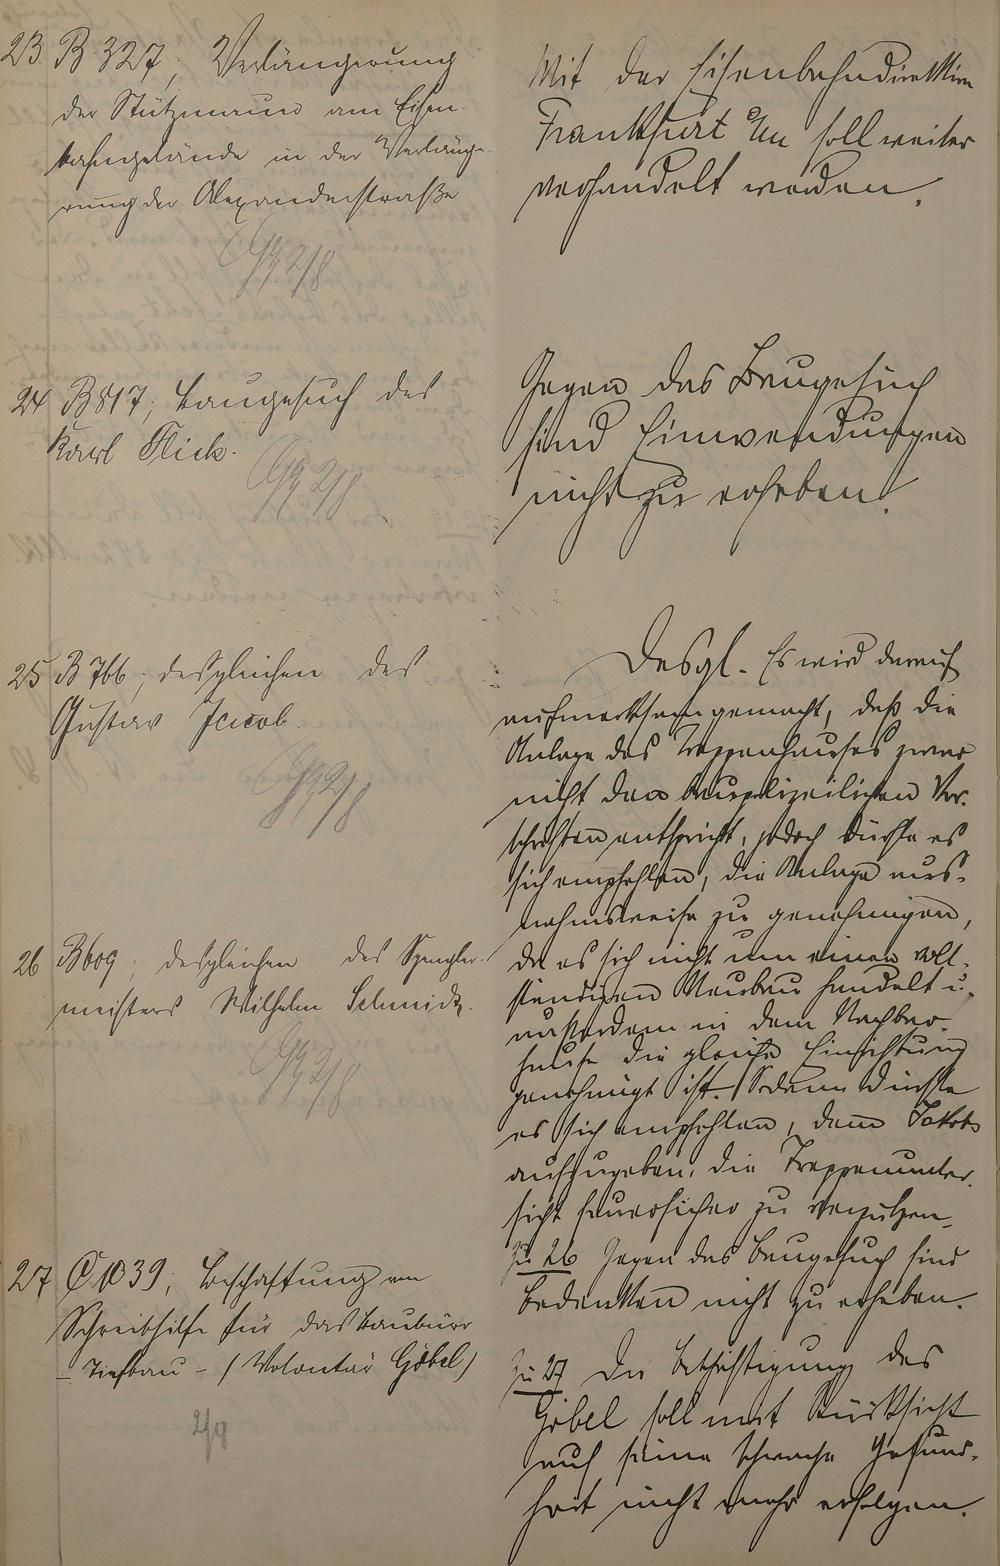 23 B 327, Verlängerung
der Stützmauer am Eisen-
bahngelände in der Verlänge-
rung der Alexanderstraße
Mit der Eisenbahndirektion
Frankfurt a/m soll weiter
verhandelt werden.
24 B 817, Baugesuch des
Karl Flick.
Gegen das Baugesuch
sind Einwendungen
nicht zu erheben.
25 B 766, desgleichen des
Gustav Jacob.
Desgl. Es wird darauf
aufmerksam gemacht, daß die
Anlage des Treppenhauses zwar
nicht den baupolizeilichen Vor-
schriften entspricht, jedoch dürfte es
sich empfehlen, die Anlage aus-
nahmsweise zu genehmigen,
da es sich nicht um einen voll-
ständigen Neubau handelt u.
außerdem in dem Nachbar-
hause die gleiche Einrichtung
genehmigt ist. Sodann dürfte
es sich empfehlen, dem Jakob
aufzugeben, die Treppenunter-
sicht feuersicher zu verputzen.
26 B 609, desgleichen des Spengler-
meisters Wilhelm Schmidt.
Zu 26 Gegen das Baugesuch sind
Bedenken nicht zu erheben.
27 C 1039, Beschaffung von
Schreibhilfe für das Baubüro
- Tiefbau - (Volontär Göbel)
2/8
Zu 27 Die Beschäftigung des
Göbel soll mit Rücksicht
auf seine schwache Gesund-
heit nicht mehr erfolgen.